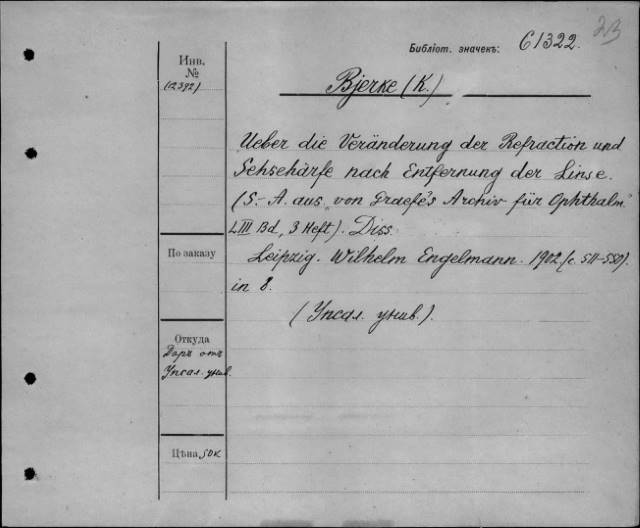 23
Библіот. значекъ: C1322.
Инв.
№
(2392)
Bjerke (K.)
Ueber die Veränderung der Refraction und
Sehschärfe nach Entfernung der Linse.
(S.-A. aus „von Graefe's Archiv für Ophthalm"
LIII Bd, 3 Heft). Diss.
Leipzig. Wilhelm Engelmann. 1902 (с. 511–550).
in 8.
(Упсал. унив.).
По заказу
Откуда
Даръ отъ
Упсал. унив.
Цѣна 50к